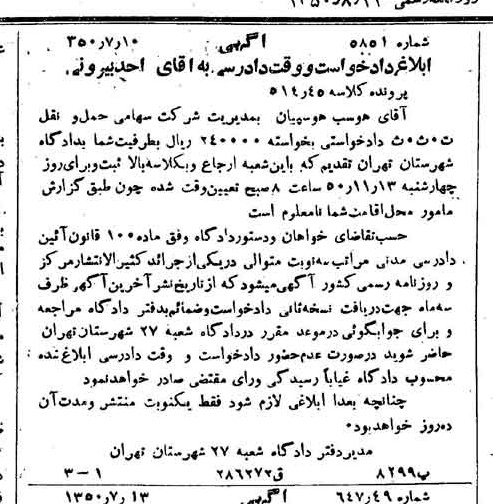 شماره ۵۸۵۱ آگهی ۳۵۰٫۷٫۱۰
ابلاغ دادخواست و وقت دادرسی به آقای احد بیرونی
پرونده کلاسه ۵۱۴٫۴۵
آقای هوسپ هوسپیان بمدیریت شرکت سهامی حمل و نقل
ت ث و ث دادخواستی بخواسته ۲۴۰۰۰۰ ریال بطرفیت شما بدادگاه
شهرستان تهران تقدیم که باین شعبه ارجاع وبکلاسه بالا ثبت وبرای روز
چهارشنبه ۵۰٫۱۱٫۱۳ ساعت ۸ صبح تعیین وقت شده چون طبق گزارش
مامور محل اقامت شما نامعلوم است
حسب تقاضای خواهان ودستور دادگاه وفق ماده ۱۰۰ قانون آئین
دادرسی مدنی مراتب سه نوبت متوالی در یکی از جرائد کثیرالانتشار مرکز
و روزنامه رسمی کشور آگهی میشود که از تاریخ نشر آخرین آگهی ظرف
سه ماه جهت دریافت نسخه ثانی دادخواست وضمائم بدفتر دادگاه مراجعه
و برای جوابگوئی در موعد مقرر در دادگاه شعبه ۲۷ شهرستان تهران
حاضر شوید در صورت عدم حضور دادخواست و وقت دادرسی ابلاغ شده
محسوب دادگاه غیاباً رسیدگی ورای مقتضی صادر خواهد نمود
چنانچه بعدا ابلاغی لازم شود فقط یکنوبت منتشر ومدت آن
ده روز خواهد بود۰
مدیر دفتر دادگاه شعبه ۲۷ شهرستان تهران
پ۸۲۹۹ ق۲۸۶۲۷۲ ۳-۱
شماره ۶۴۷٫۴۹ آگهی ۱۳۵۰٫۷٫۱۳